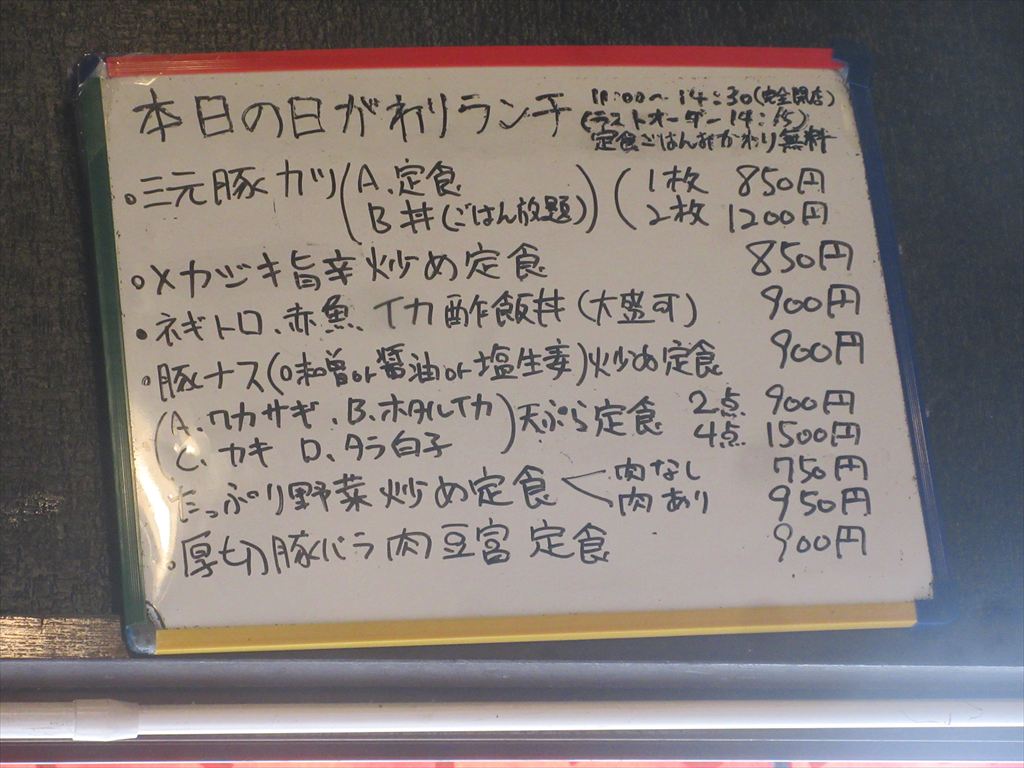 本日の日がわりランチ
11:00〜14:30(完全閉店)
(ラストオーダー14:15)
定食ごはんおかわり無料
・三元豚カツ(A.定食 B丼(ごはん放題))(1枚 850円
2枚 1200円
・メカジキ旨辛炒め定食 850円
・ネギトロ、赤魚、イカ酢飯丼(大盛可) 900円
・豚ナス(味噌or醤油or塩生姜)炒め定食 900円
(A、ワカサギ、B、ホタルイカ
C、カキ D、タラ白子)天ぷら定食 2点 900円
4点 1500円
たっぷり野菜炒め定食 肉なし 750円
肉あり 950円
・厚切豚バラ肉豆富定食 900円